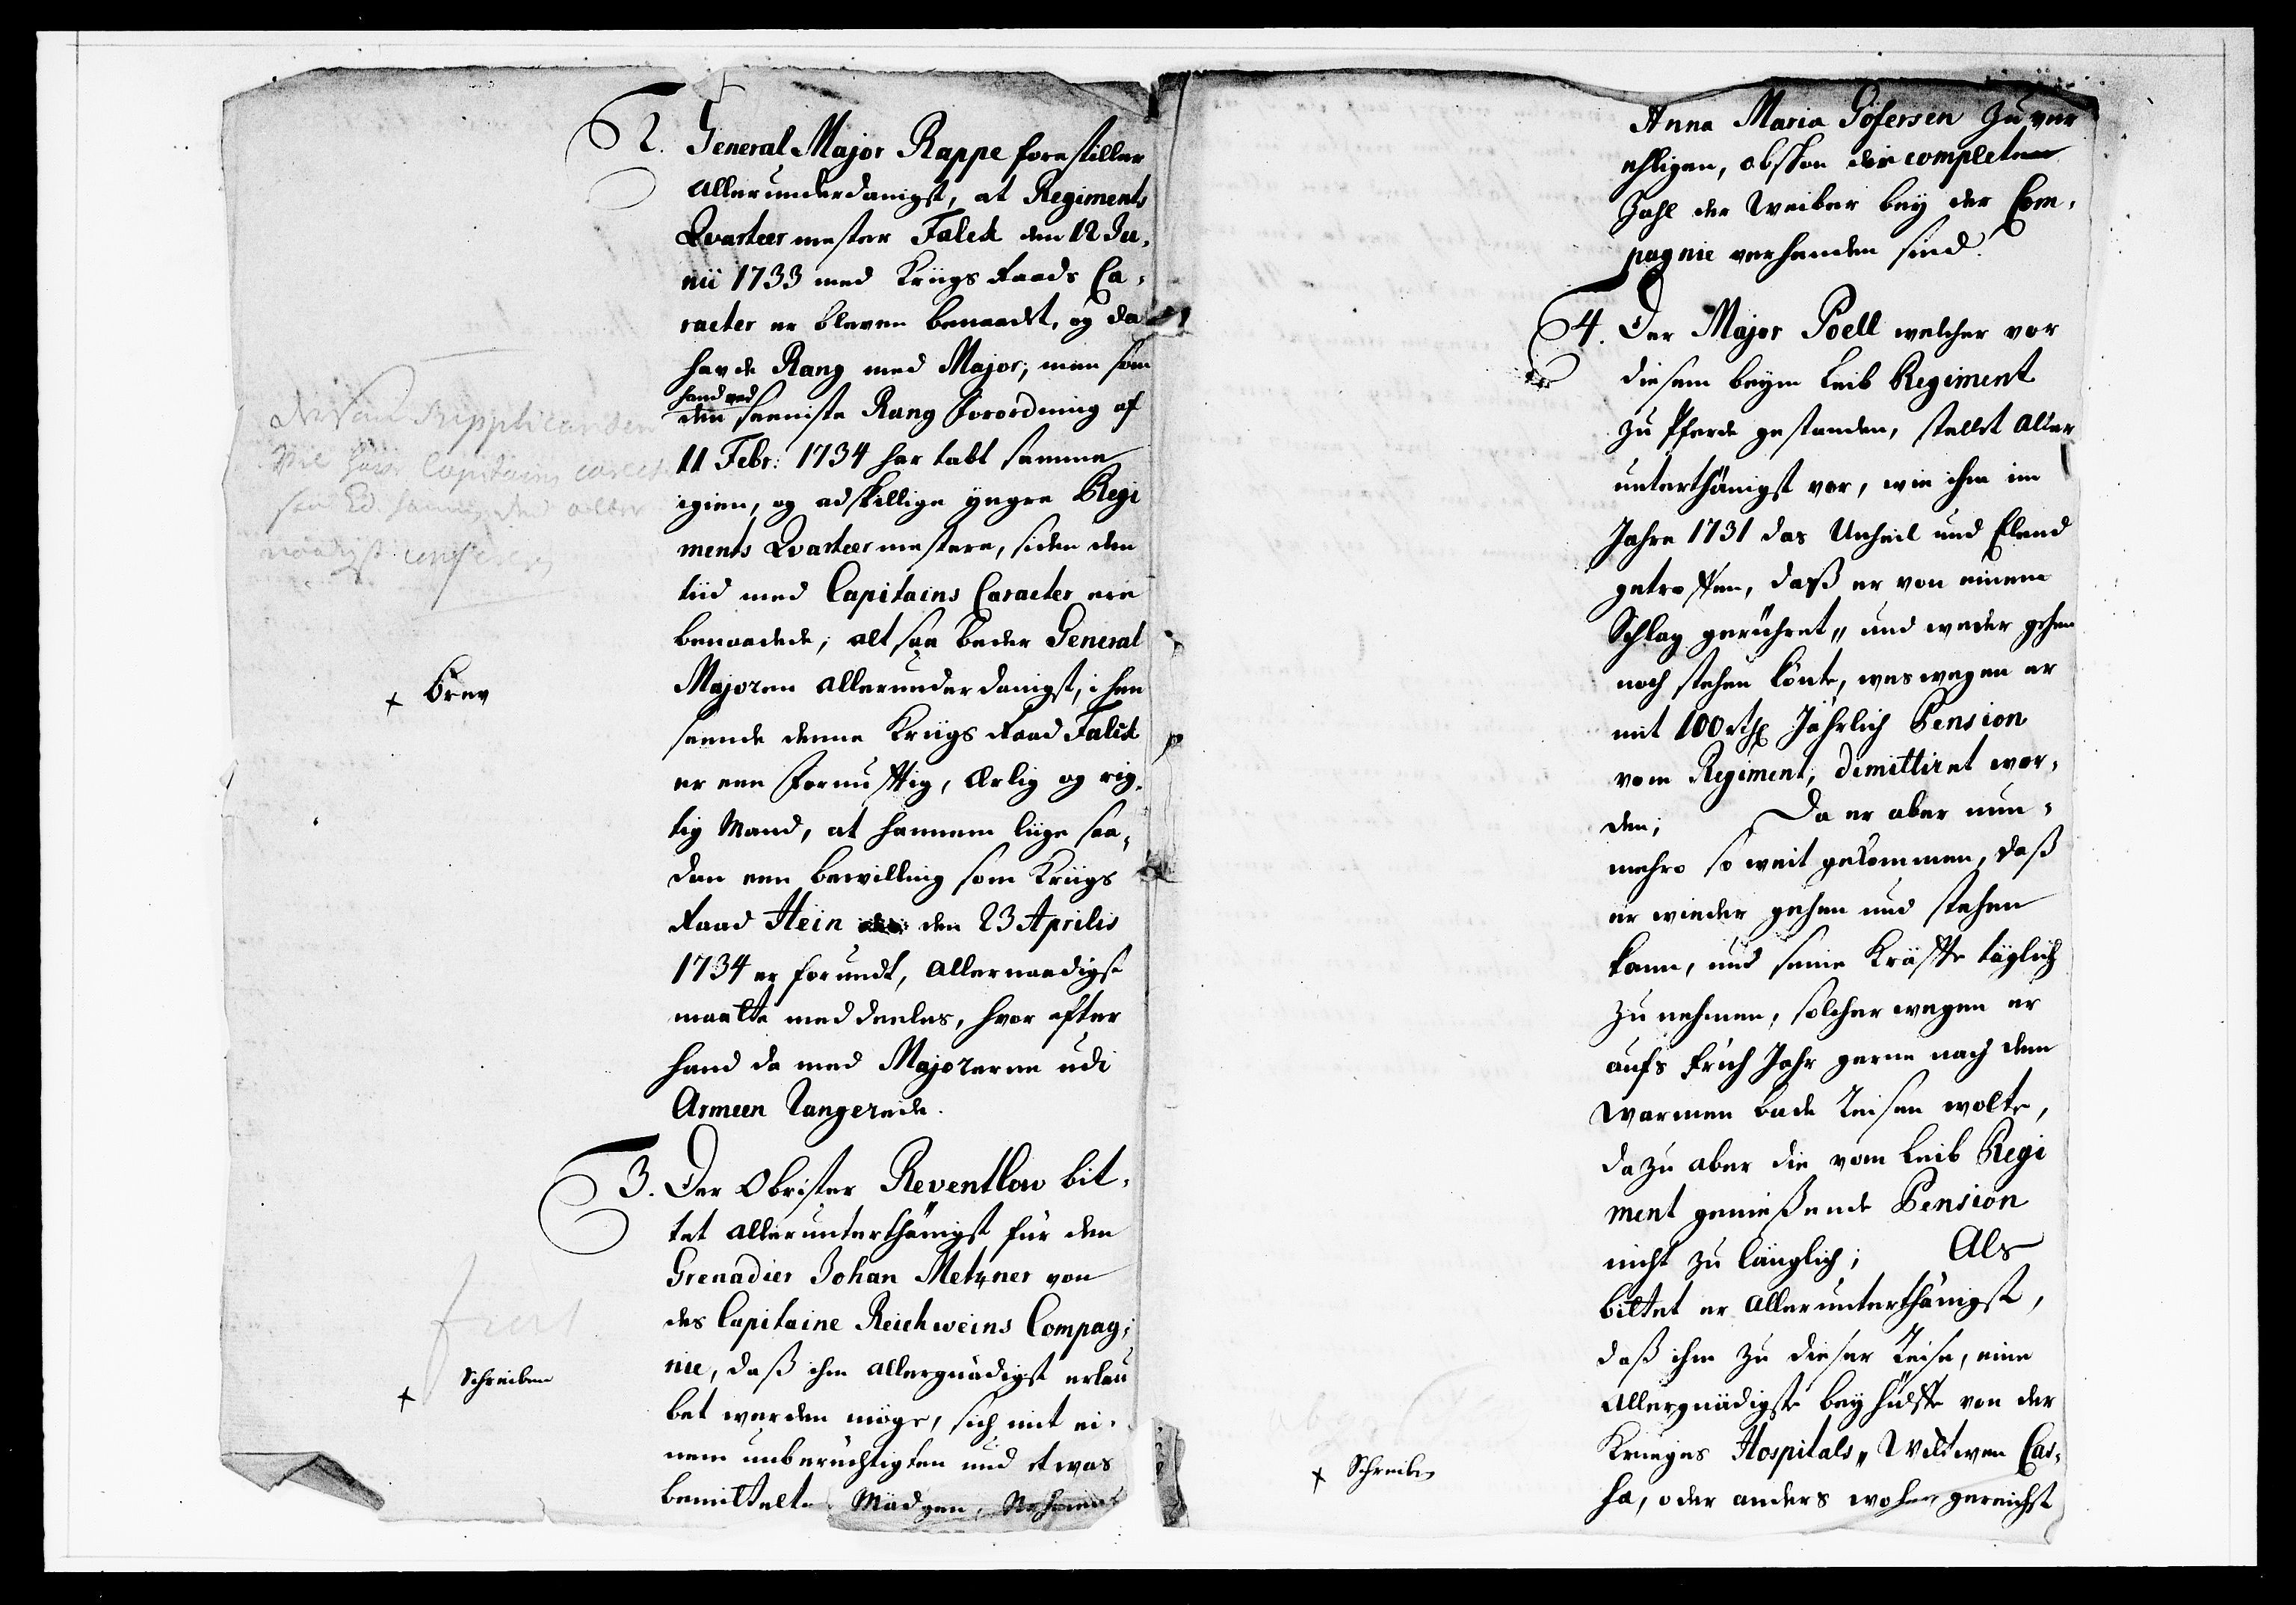 2. General Major Rappe forestiller
allerunderdanigst, at Regiments
Qvarteermester Falck den 12 Ju-
nii 1733 med Kriigs Raads Ca-
racter er bleven benaadet, og da
havde Rang med Major, men som
hand ved
den seeniste Rang Forordning af
11 Febr: 1734 har tabt samme
igien, og adskillige yngre Regi
ments Qvarteermestere, siden den
tiid med Capitains Caracter ere
benaadede, alt saa beder General
Majoren allerunderdanigst, i hen
seende denne Kriigs Raad Falck
er een fornufftig, ærlig og rig-
tig Mand, at hannem liige saa-
dan een bevilling som Kriigs
Raad Hein den 23 Aprilis
1734 er forundt, allernaadigst
maatte meddeeles, hvor efter
hand da med Majorerne udi
Armeen Rangerede.
Supplicanden
Capitains
× Brev
3. Der Obrister Reventlow bit-
tet allerunterthänigst für den
Grenadier Johan Metzner von
des Capitaine Reichweins Compag-
nie, daß ihm allergnädigst erlau
bet werden möge, sich mit ei-
nem unberüchtigten und etwas
bemittelte Mädgen, Nahmens
× Schreiben
Anna Maria Göfersen zu ver
ehligen, obschon die completen
Zahl der Weiber bey der Com-
pagnie verhanden sind.
4. Der Major Poell welcher vor
diesem beym Leib Regiment
zu Pferde gestanden, stellet aller
unterthänigst vor, wie ihm im
Jahre 1731 das Unheil und Elend
getroffen, daß er von einem
Schlag gerühret, und weder gehen
noch stehen könte, weswegen er
mit 100 rthl Jährlich Pension
vom Regiment, dimittiret wor-
den; Da er aber nun-
mehro so weit gekommen, daß
er wieder gehen und stehen
kann, und seine Kräffte täglich
zu nehmen, solcher wegen er
aufs Früh Jahr gerne nach dem
warmen bade reisen wolte,
dazu aber die vom Leib Regi
ment genießende Pension
nicht zu länglich; Als
bittet er allerunterthänigst,
daß ihm zu dieser Reise, eine
allergnädigste beyhülffe von der
Krieges Hospitals, Wittwen Cas-
ha, oder anders woher gereichet
× Schreiben